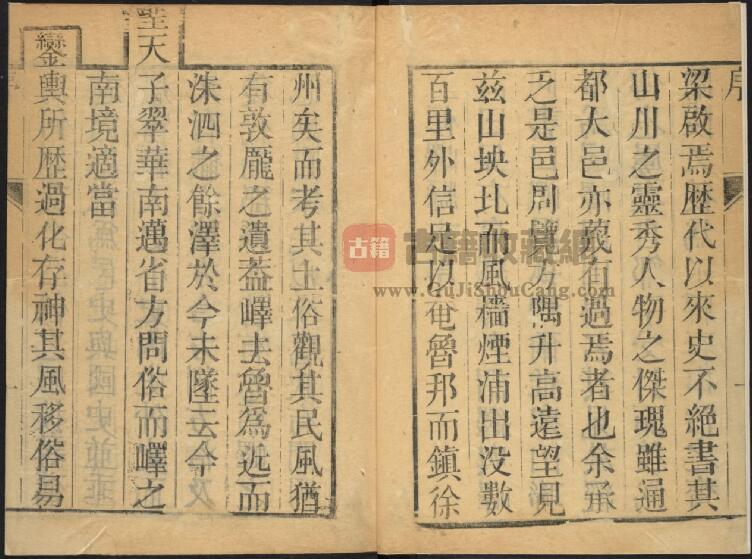 序
梁啟焉歷代以來史不絕書其
山川之靈秀人物之傑瑰雖通
都大邑亦蔑有過焉者也余承
之是邑問境方隅升高遠望見
玆山坱圠而風檣煙浦出没數
百里外信足以奄魯邦而鎮徐
州矣而考其土俗觀其民風猶
有敦龐之遺葢嶧去魯爲近而
洙泗之餘澤於今未墜云今
聖天
子翠華南邁省方問俗而嶧之
南境適當
鑾輿所歷過化存神其風移俗易
古籍
古籍收藏網
www.GuJiShouCang.com